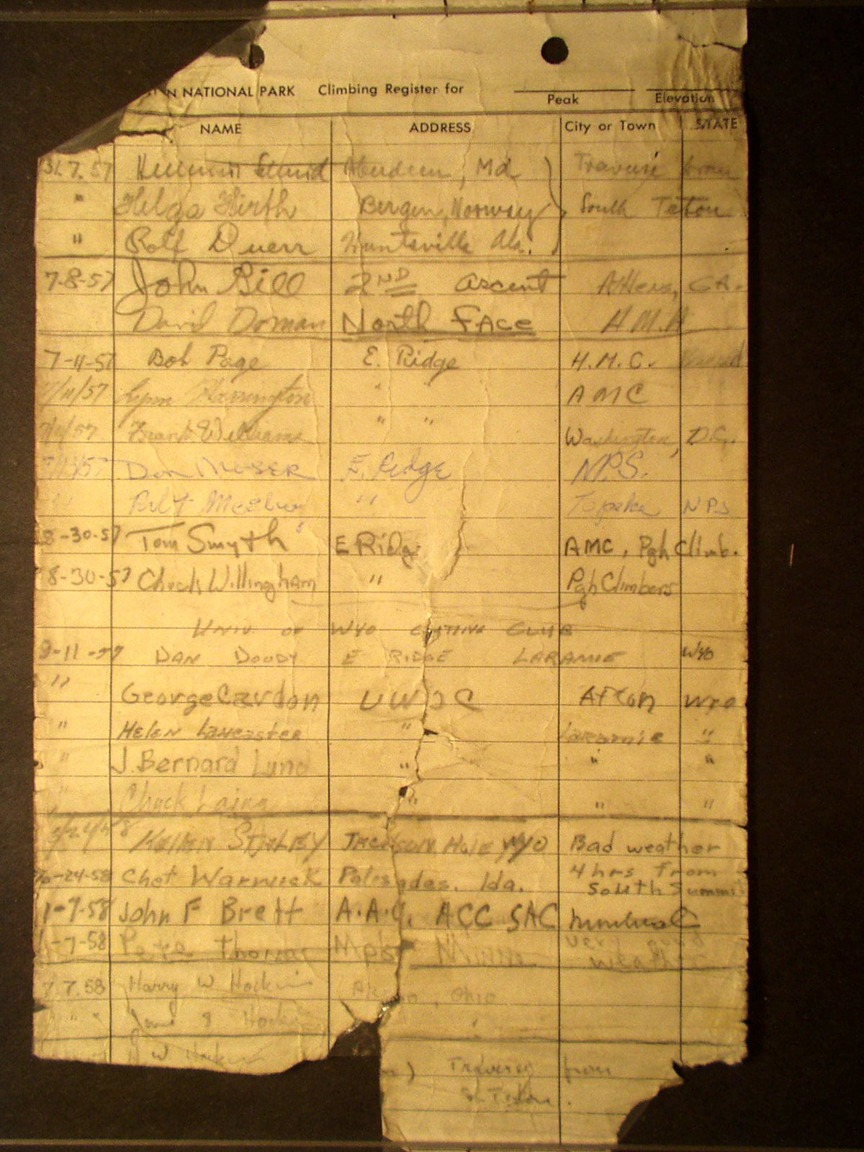 N NATIONAL PARK Climbing Register for Peak Elevation
NAME ADDRESS City or Town STATE
31.7.57 Schmid Aberdeen, Md. ) Traverse from
" Helga Hirth Bergen, Norway South Teton
" Rolf Duerr Huntsville Ala.
7-8-57 John Gill 2ND ascent Athens, GA.
David Dornan North FAce
7-11-57 Bob Page E. Ridge H.M.C.
7/11/57 Lynn " AMC
7/11/57 Frank Williams " " Washington, D.C.
Don MOSER E. Ridge N.P.S.
" Topeka NPS
8-30-57 Tom Smyth E Ridge AMC, Pgh Climb.
8-30-57 Chuck Willingham " Pgh Climbers
UNIV OF WYO OUTING CLUB
DAN DOODY E RIDGE LARAMIE WYO
" George Cardon UWOC Afton Wyo
" HELEN Lancaster " LARAMIE "
" J. Bernard Lund " " "
" Chuck Laing " " "
JACKSON Hole WYO Bad weather
-24-58 Chet Warwick Palisades. Ida. 4 hrs from
South Summit
-7-58 John F Brett A.A.C. ACC SAC
-7-58 Pete Mpls Minn. very good
weather
7.7.58 Harry W Ohio
" "
W
) Traverse from
S. Teton.